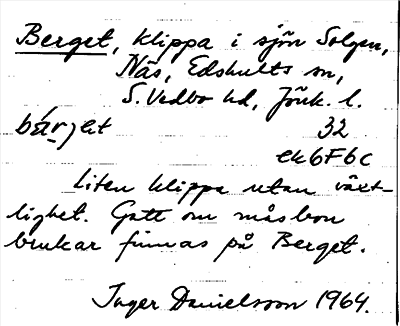 Berget, klippa i sjön Solgen,
Näs, Edshults sn,
S. Vedbo hd, Jönk. l.
bárjet 32
ek6F6c
Liten klippa utan växt-
lighet. Gott om måsbon
brukar finnas på Berget.
Inger Danielsson 1964.